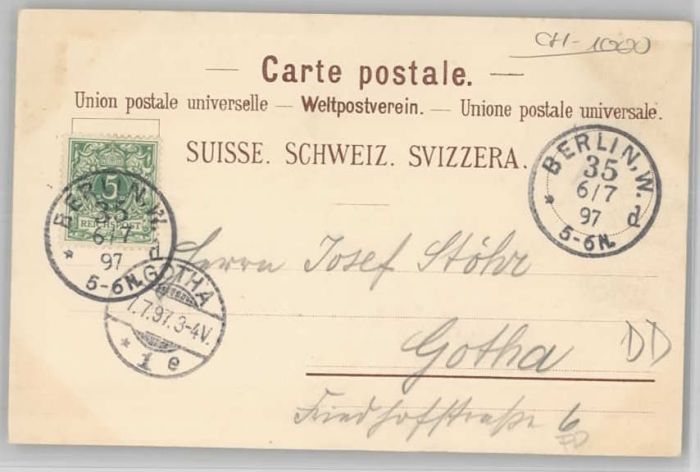 CH-1000
Carte postale.
Union postale universelle — Weltpostverein. — Unione postale universale.
SUISSE. SCHWEIZ. SVIZZERA.
5
REICHSPOST
BERLIN, W.
35
6/7
97
5-6N.
* d
BERLIN, W.
35
6/7
97
5-6N.
* d
GOTHA
7.7.97.3-4V.
* 1 e
Herrn Josef Stöhr
Gotha
DD
Friedhofstraße 6